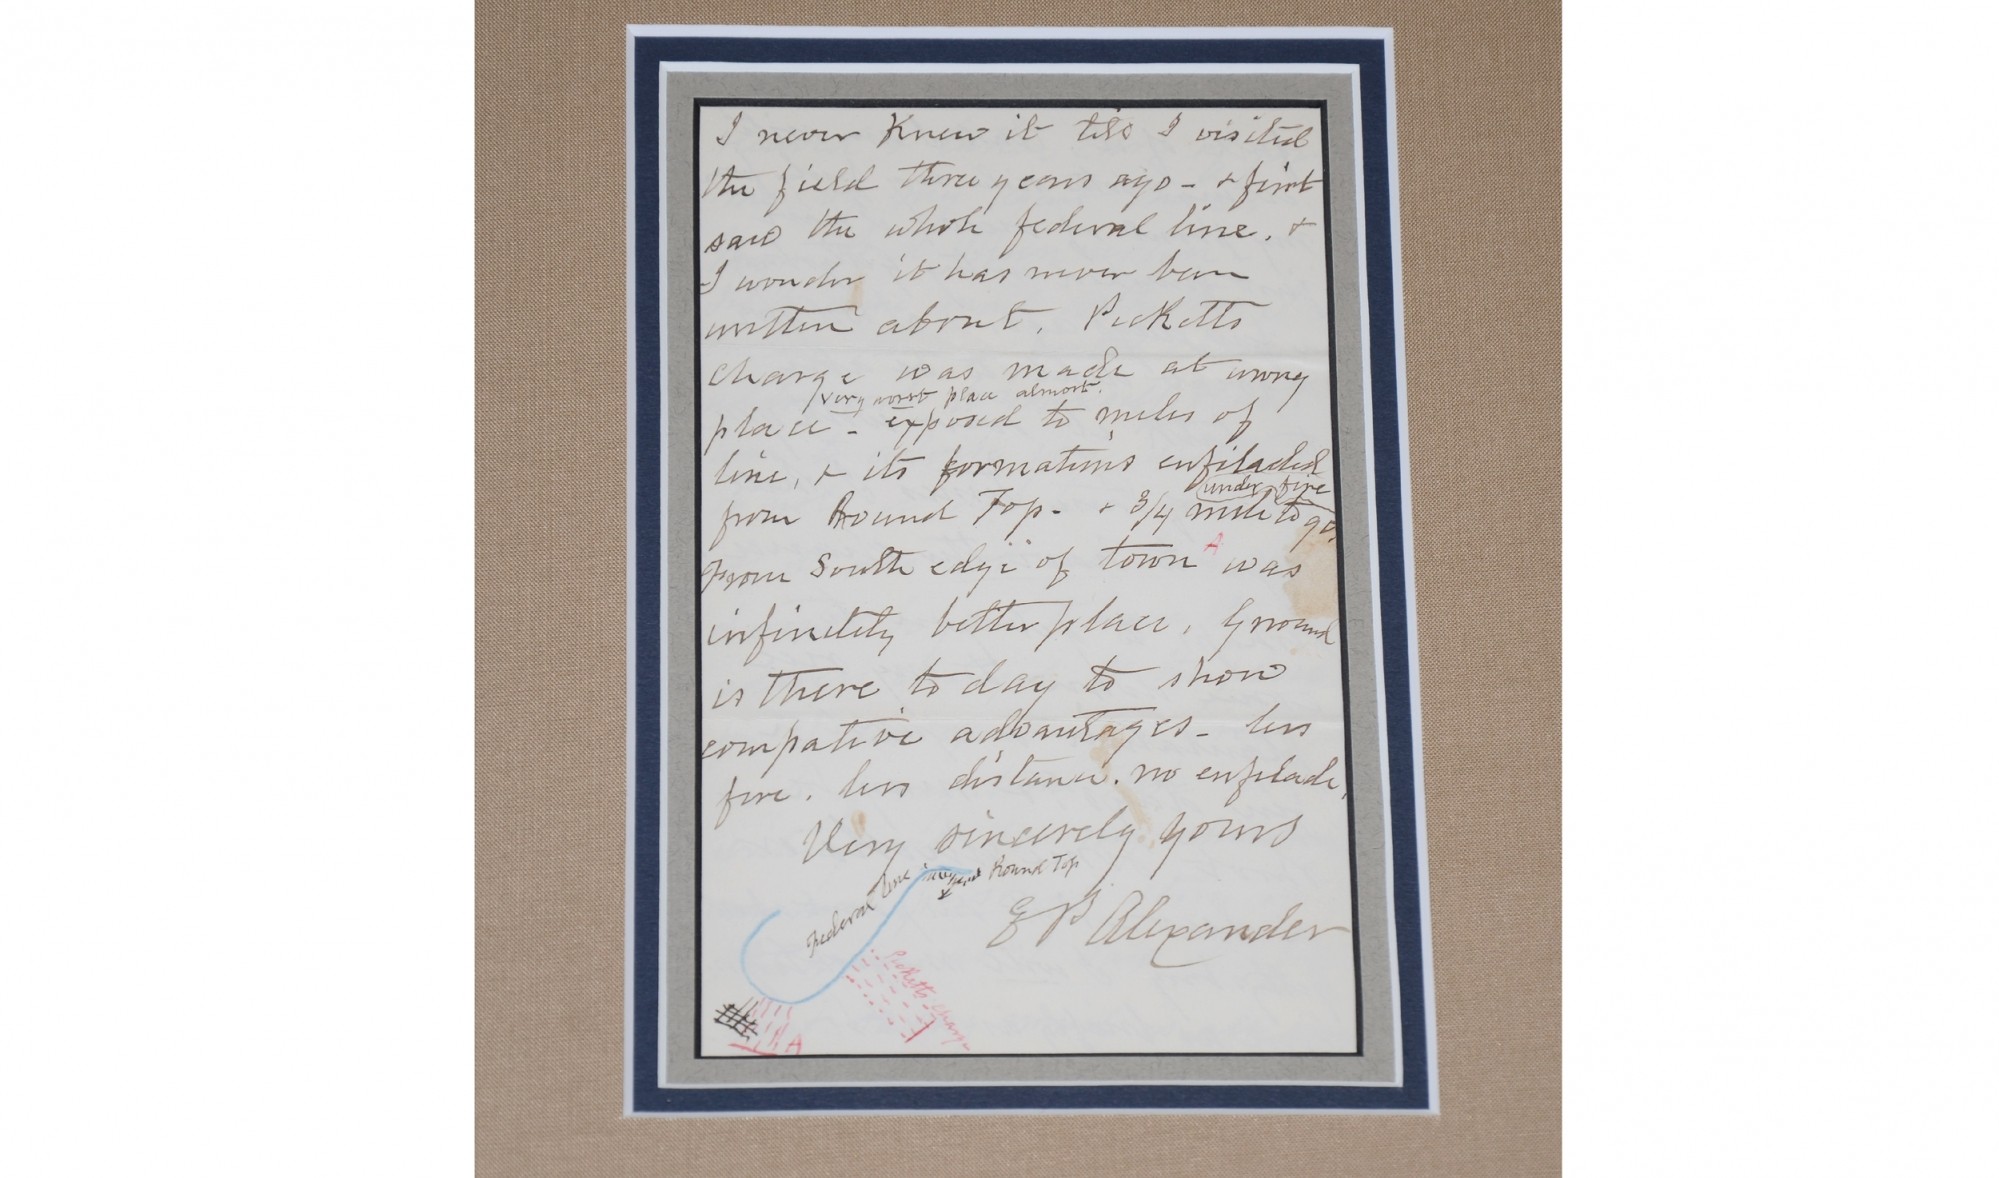 I never Knew it till I visited
the field three years ago - & first
saw the whole federal line, &
I wonder it has never been
written about. Picketts
charge was made at wrong
very worst place almost.
place - exposed to miles of
line, & its formations enfiladed
under fire
from Round Top - & 3/4 mile to go.
From South edge of town A was
infinitely better place. Ground
is there to day to show
compative advantages - less
fire. less distance. no enfilade.
Very sincerely yours
Federal line Round Top
E P Alexander
Picketts charge
A